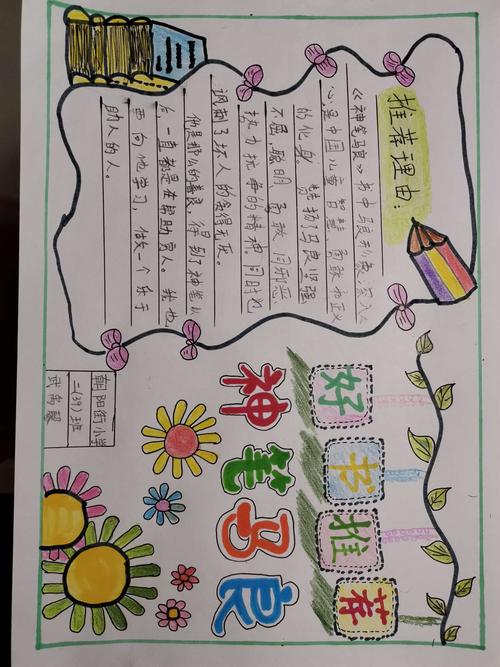 好书推荐
神笔马良
推荐理由：
《神笔马良》书中马良形象，深入
心，是中国儿童智慧 勇敢和正义
的化身，赞扬了马良坚强
不屈，聪明 勇敢 同邪恶
势力抗争的精神。同时也
讽刺了坏人的贪得无厌。
他是那么的善良，得到了神笔以
后，一直都是在帮助穷人。我也
要向他学习，做一个乐于
助人的人。
朝阳街小学
二(39)班